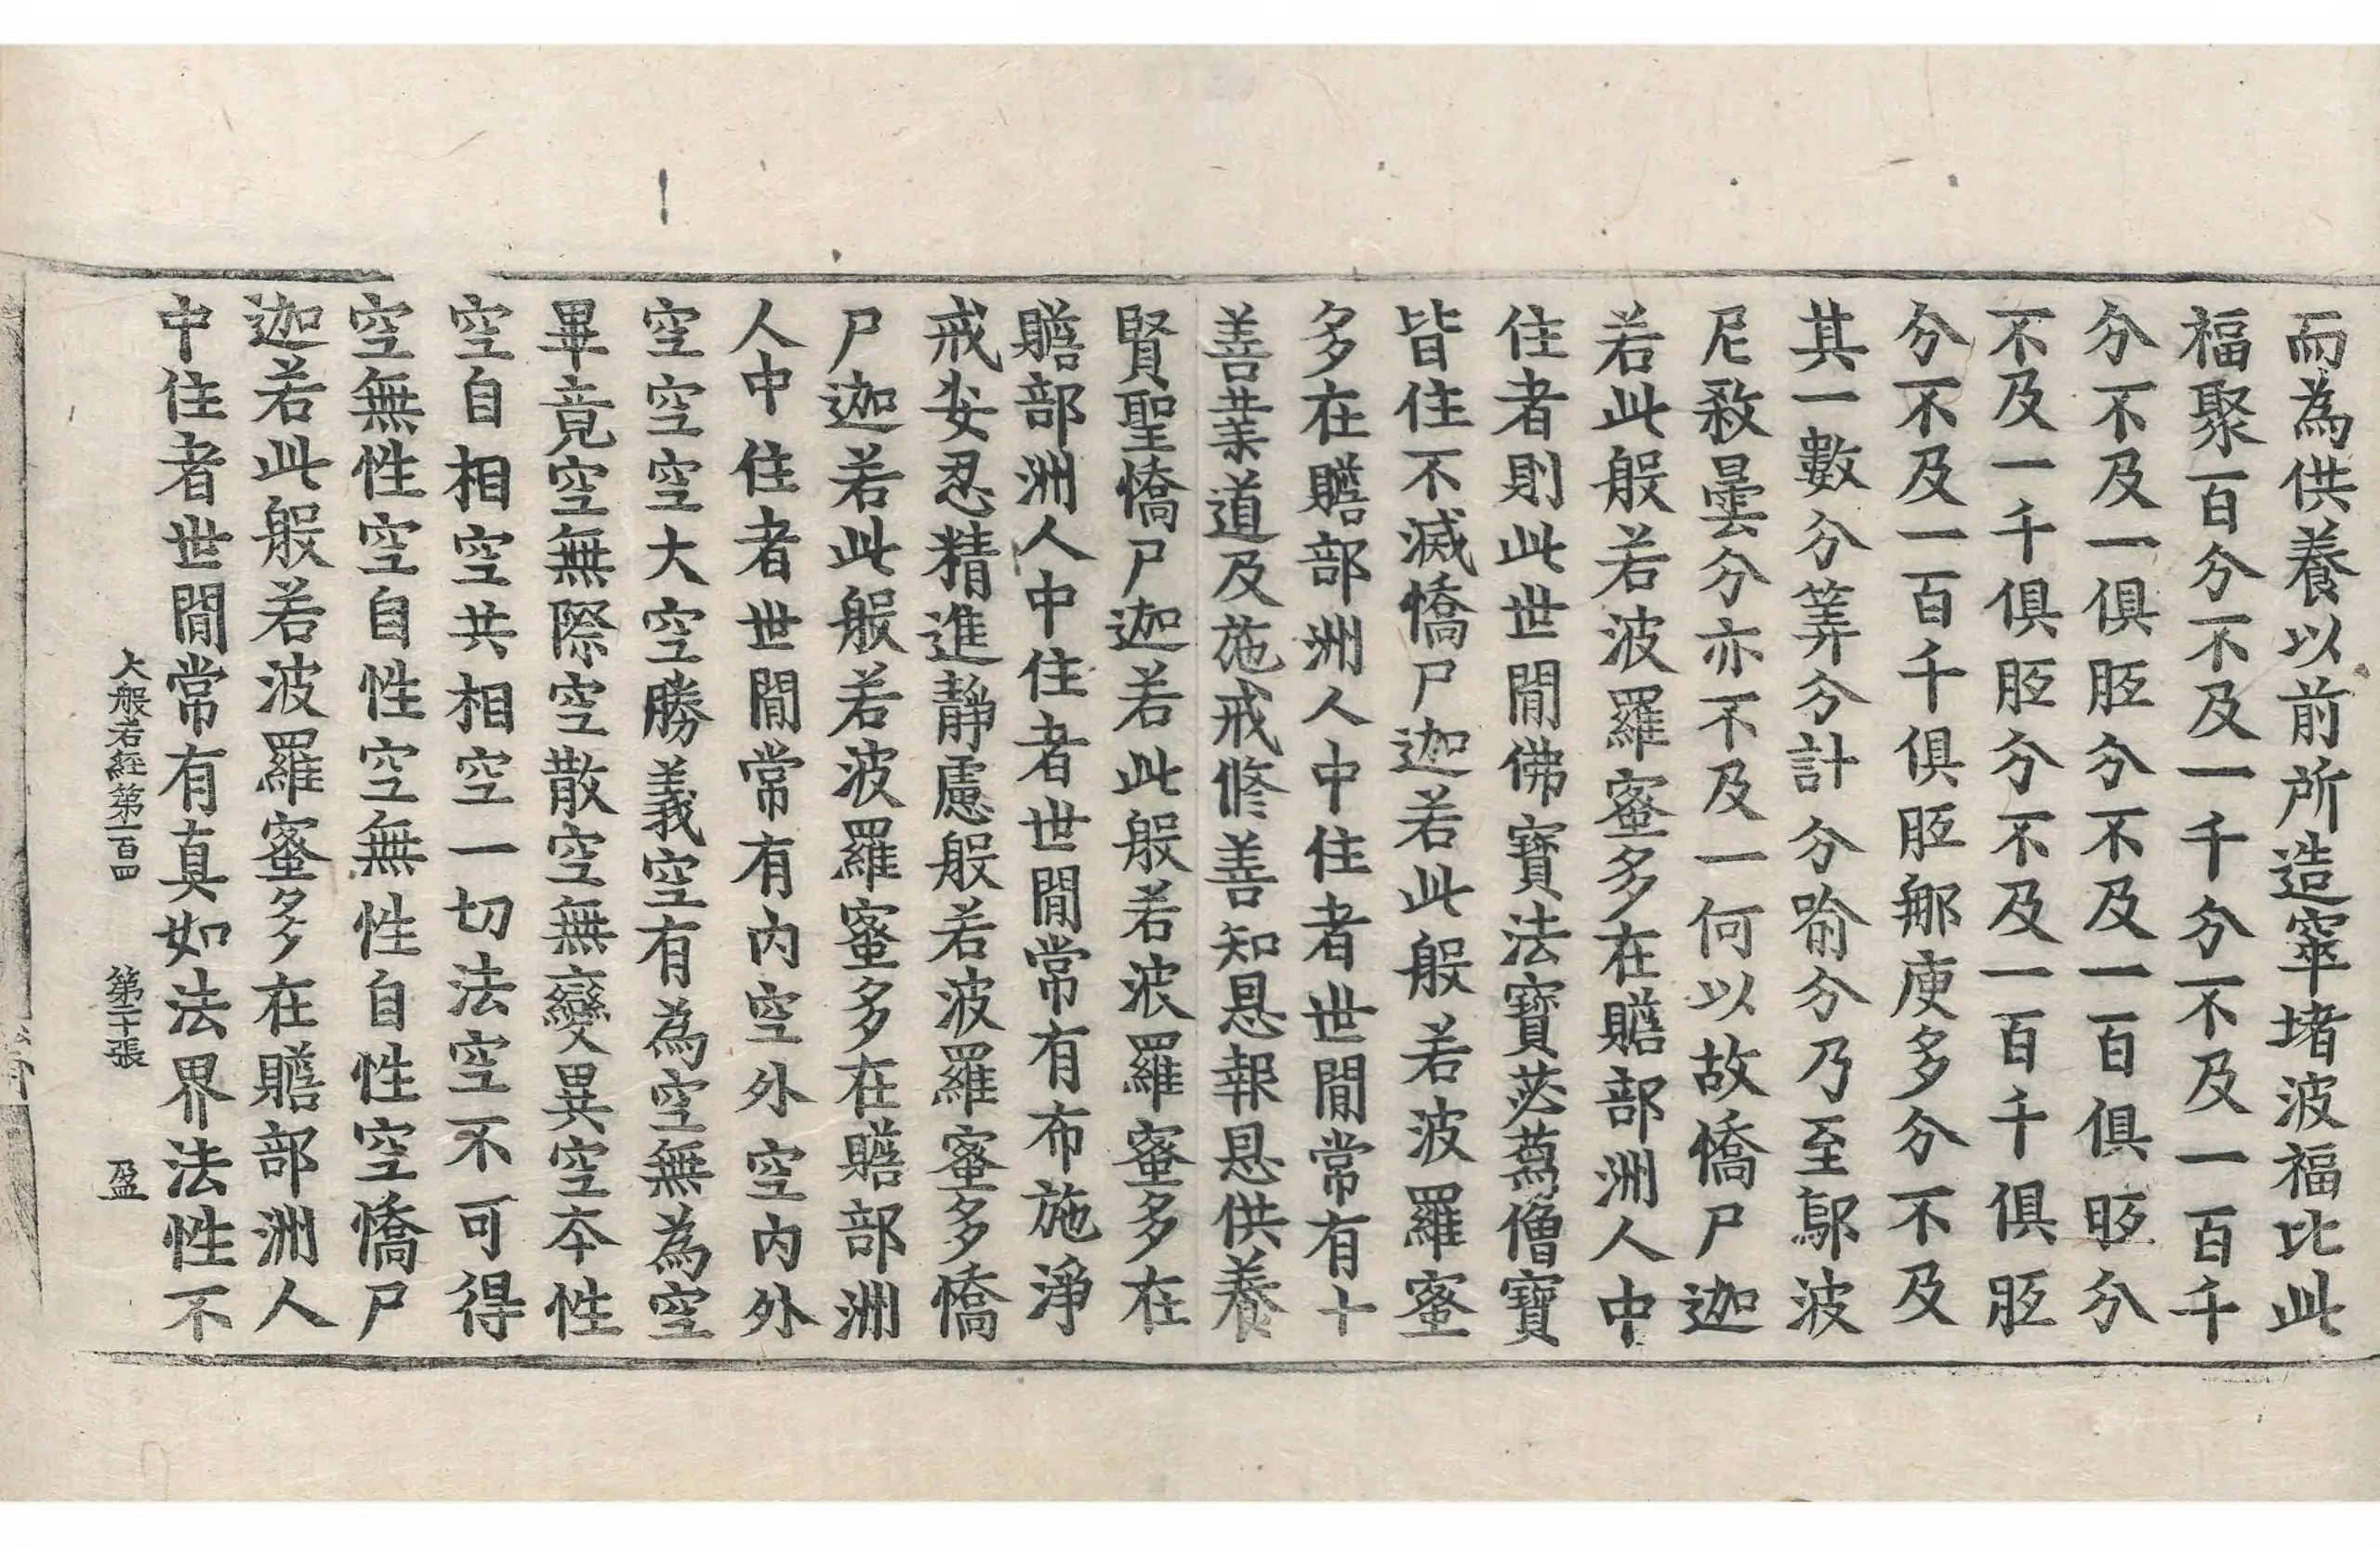 而為供養以前所造窣堵波福比此
福聚百分不及一千分不及一百千
分不及一俱胝分不及一百俱胝分
不及一千俱胝分不及一百千俱胝
分不及一百千俱胝那庾多分不及
其一數分筭分計分喻分乃至鄔波
尼殺曇分亦不及一何以故憍尸迦
若此般若波羅蜜多在贍部洲人中
住者則此世間佛寶法寶苾蒭僧寶
皆住不滅憍尸迦若此般若波羅蜜
多在贍部洲人中住者世間常有十
善業道及施戒修善知恩報恩供養
賢聖憍尸迦若此般若波羅蜜多在
贍部洲人中住者世間常有布施淨
戒安忍精進靜慮般若波羅蜜多憍
尸迦若此般若波羅蜜多在贍部洲
人中住者世間常有內空外空內外
空空空大空勝義空有為空無為空
畢竟空無際空散空無變異空本性
空自相空共相空一切法空不可得
空無性空自性空無性自性空憍尸
迦若此般若波羅蜜多在贍部洲人
中住者世間常有真如法界法性不
大般若經第一百四 第二十張 盈